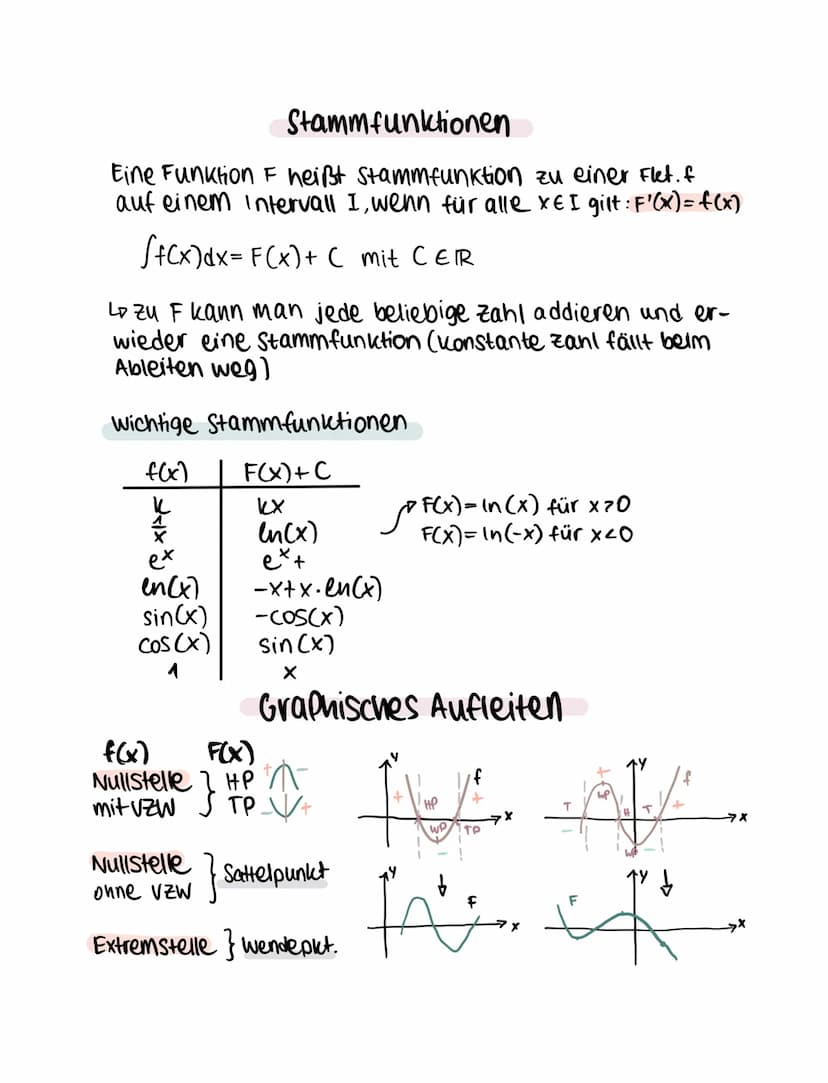 Stammfunktionen
Eine Funktion F heißt Stammfunktion zu einer Fkt. f
auf einem Intervall I, wenn für alle x∈I gilt: F'(x)=f(x)
∫f(x)dx= F(x)+ C mit C∈ℝ
↳ zu F kann man jede beliebige Zahl addieren und er-
wieder eine Stammfunktion (konstante Zahl fällt beim
Ableiten weg)
Wichtige Stammfunktionen
f(x) F(x)+C
k kx
1/x ln(x)
F(x)=ln(x) für x>0
F(x)=ln(-x) für x<0
eˣ eˣ+
ln(x) -x+x·ln(x)
sin(x) -cos(x)
cos(x) sin(x)
1 x
Graphisches Aufleiten
f(x) F(x)
Nullstelle } HP + -
mit VZW } TP - +
Nullstelle } Sattelpunkt
ohne VZW
Extremstelle } Wendepkt.
y f
+ HP +
x
WP TP
-
y
F
x
y f
+
T WP H T +
x
-
WP -
y
F
x